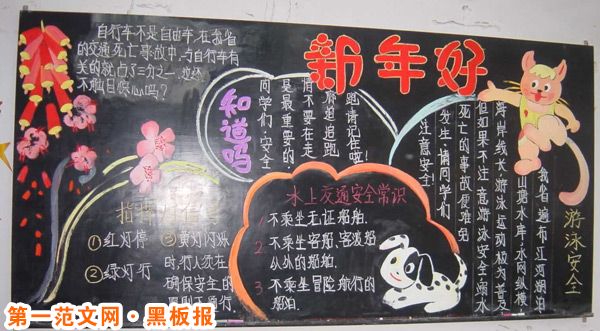 新年好
自行车不是自由车,在我省
的交通死亡事故中,与自行车有
关的就占了三分之一,这还
不触目惊心吗?
知道吗
同学们,安全
是最重要的,
请不要在走
廊追追跑
跑请记住啦!
我省遍布江河湖泊
山塘水库,水网纵横
海岸线长游泳运动极为普及
但如果不注意游泳安全溺水
死亡的事故便难免
发生,请同学们
注意安全!
游泳安全
水上交通安全常识
1.不乘坐无证船舶.
2.不乘坐客船,客渡船
以外的船舶.
3.不乘坐冒险航行的
船舶.
①红灯停
②绿灯行
③黄灯闪烁
时,行人须在
确保安全的
原则下通行
第一范文网·黑板报